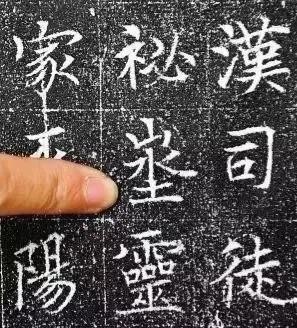 漢司徒
祕埊靈
家陽